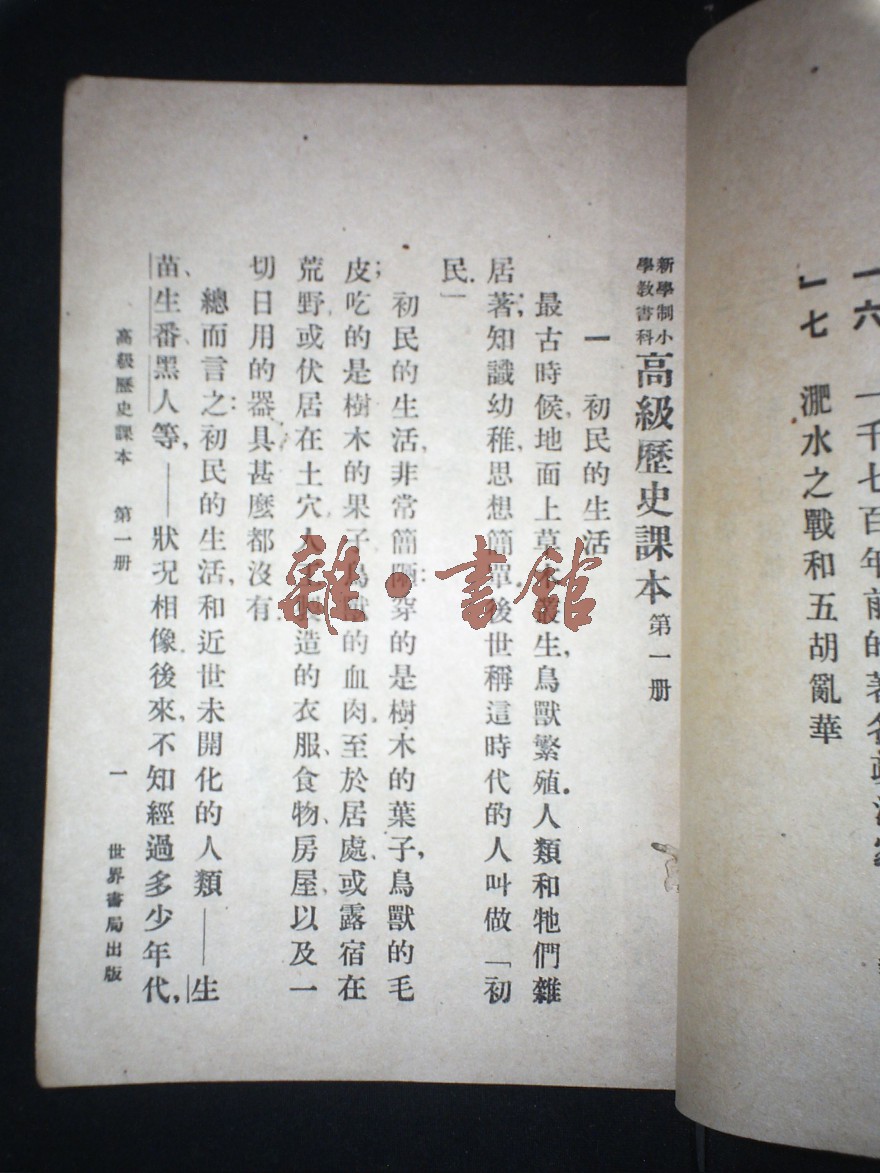 一六　一千七百年前的著名政治家
一七　淝水之戰和五胡亂華
新學制小
學教書科
高級歷史課本 第一册
一　初民的生活
最古時候,地面上草木叢生,鳥獸繁殖.人類和牠們雜
居著,知識幼稚,思想簡單,後世稱這時代的人叫做「初
民.」
初民的生活,非常簡陋:穿的是樹木的葉子,鳥獸的毛
皮;吃的是樹木的果子,鳥獸的血肉.至於居處,或露宿在
荒野,或伏居在土穴.人工製造的衣服、食物、房屋、以及一
切日用的器具,甚麼都沒有.
總而言之:初民的生活,和近世未開化的人類——生
苗、生番、黑人等,——狀況相像.後來,不知經過多少年代,
高級歷史課本　第一册　一　世界書局出版
雜·書館